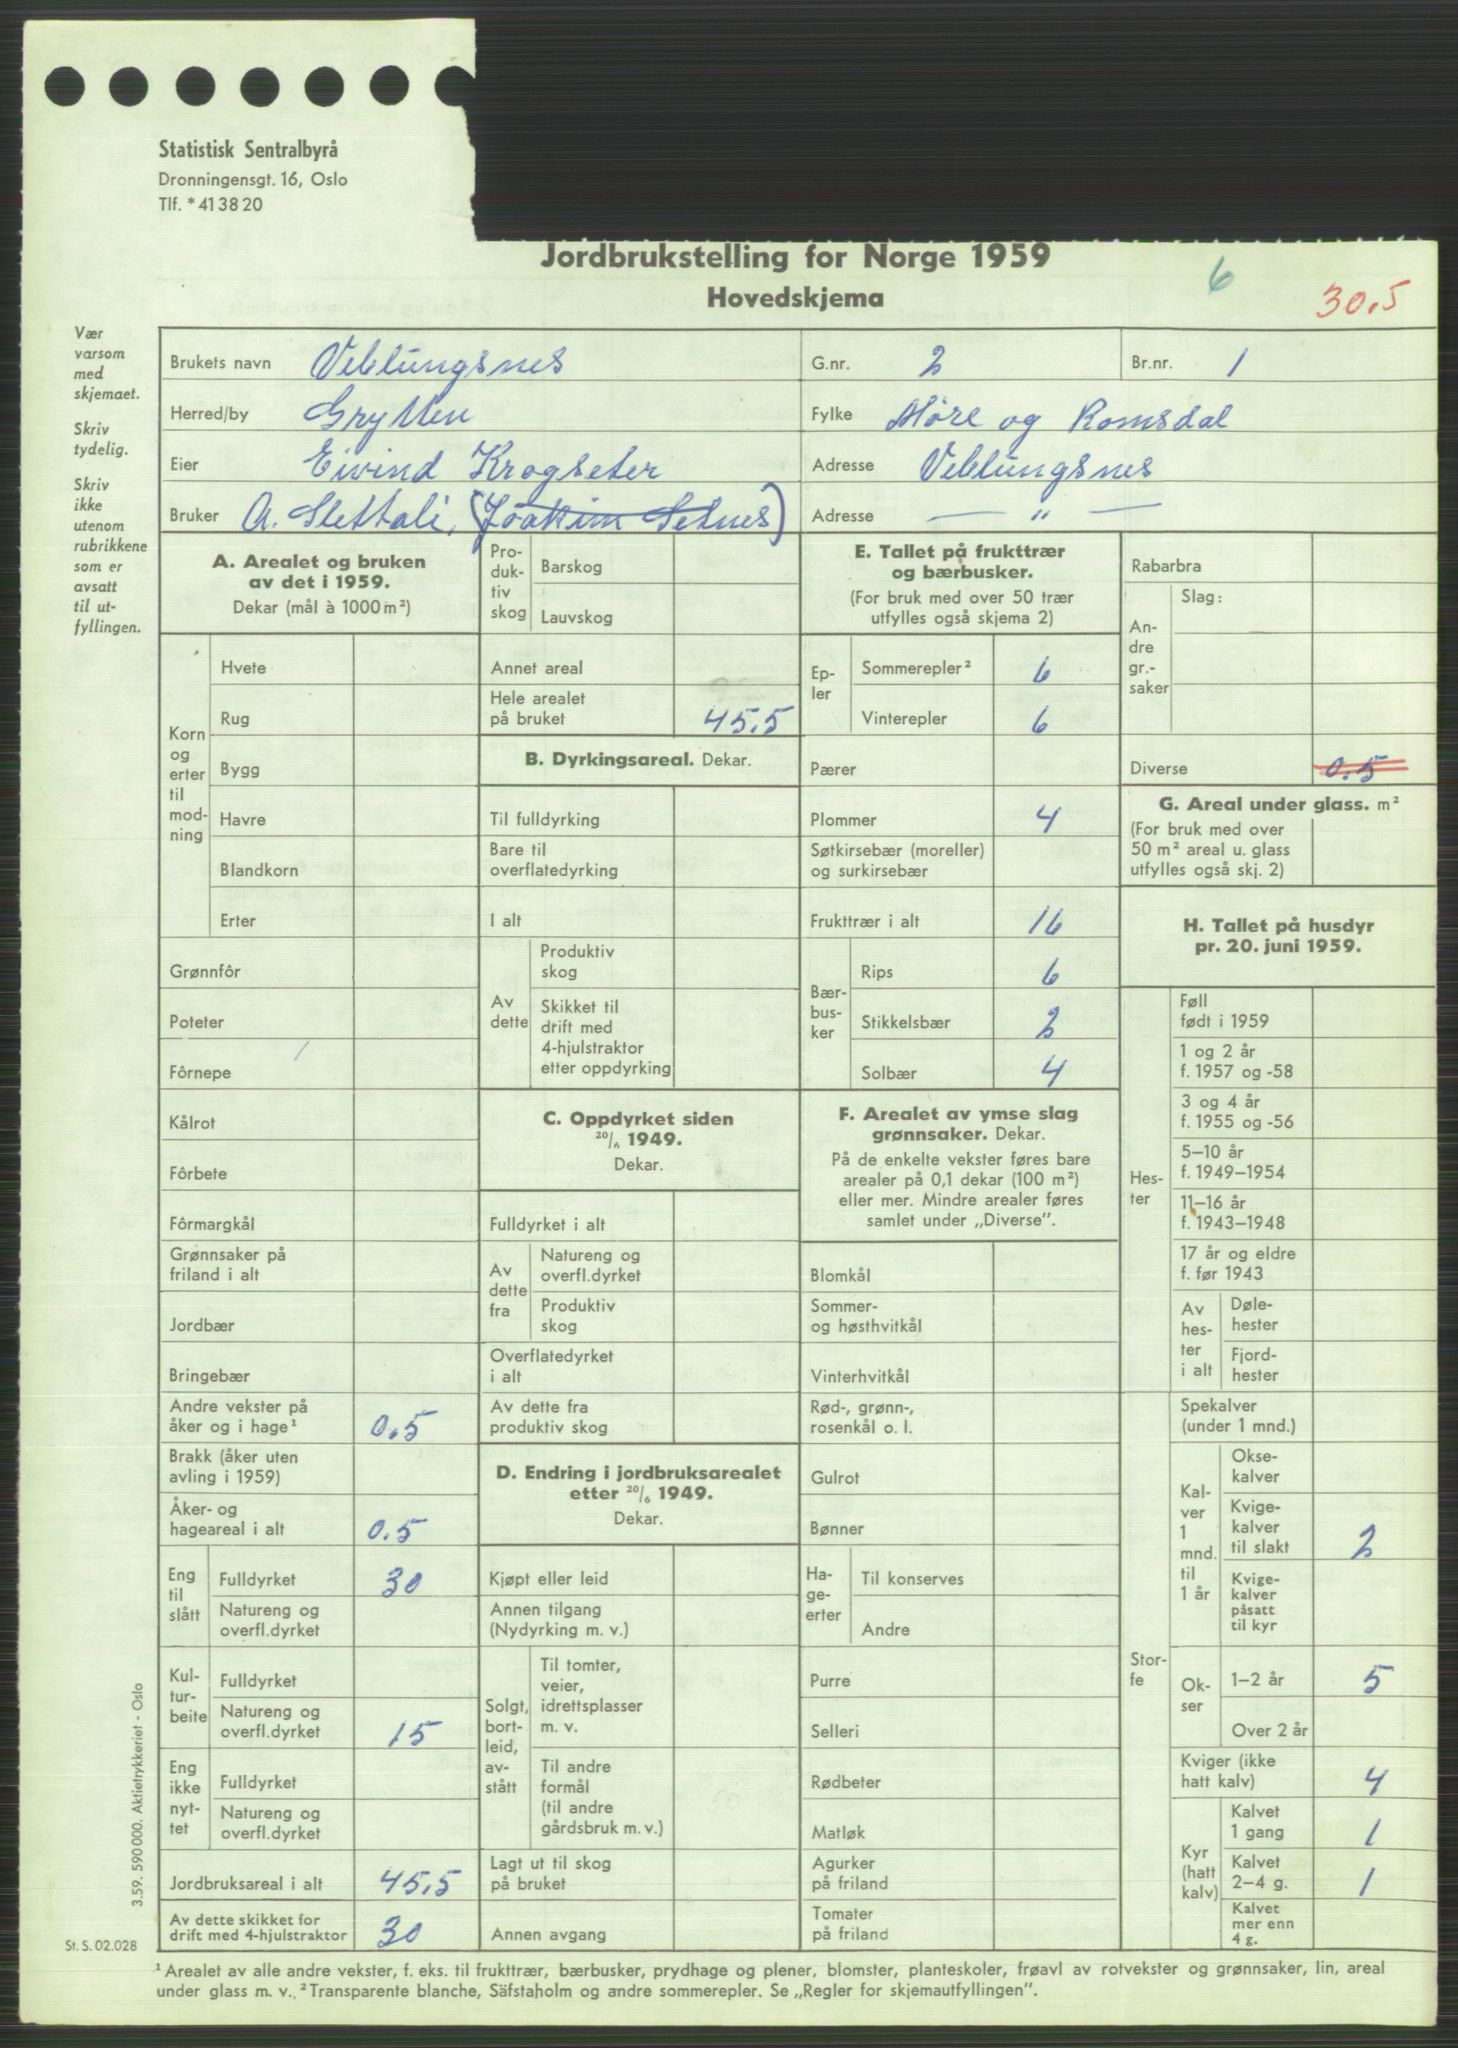 Statistisk Sentralbyrå
Dronningensgt. 16, Oslo
Tlf. * 41 38 20
Jordbrukstelling for Norge 1959
Hovedskjema
6
30.5
Vær
varsom
med
skjemaet.
Skriv
tydelig.
Skriv
ikke
utenom
rubrikkene
som er
avsatt
til ut-
fyllingen.
Brukets navn Veblungsnes G.nr. 2 Br.nr. 1
Herred/by Grytten Fylke Møre og Romsdal
Eier Eivind Krogseter Adresse Veblungsnes
Bruker A. Slettali, (Joakim Setnes) Adresse — " —
A. Arealet og bruken
av det i 1959.
Dekar (mål à 1000 m²)
Korn
og
erter
til
mod-
ning
Hvete
Rug
Bygg
Havre
Blandkorn
Erter
Grønnfôr
Poteter
Fôrnepe
Kålrot
Fôrbete
Fôrmargkål
Grønnsaker på
friland i alt
Jordbær
Bringebær
Andre vekster på
åker og i hage¹ 0.5
Brakk (åker uten
avling i 1959)
Åker- og
hageareal i alt 0.5
Eng
til
slått
Fulldyrket 30
Natureng og
overfl.dyrket
Kul-
tur-
beite
Fulldyrket
Natureng og
overfl.dyrket 15
Eng
ikke
nyt-
tet
Fulldyrket
Natureng og
overfl.dyrket
Jordbruksareal i alt 45,5
Av dette skikket for
drift med 4-hjulstraktor 30
Pro-
duk-
tiv
skog
Barskog
Lauvskog
Annet areal
Hele arealet
på bruket 45.5
B. Dyrkingsareal. Dekar.
Til fulldyrking
Bare til
overflatedyrking
I alt
Av
dette
Produktiv
skog
Skikket til
drift med
4-hjulstraktor
etter oppdyrking
C. Oppdyrket siden
20/6 1949.
Dekar.
Fulldyrket i alt
Av
dette
fra
Natureng og
overfl.dyrket
Produktiv
skog
Overflatedyrket
i alt
Av dette fra
produktiv skog
D. Endring i jordbruksarealet
etter 20/6 1949.
Dekar.
Kjøpt eller leid
Annen tilgang
(Nydyrking m. v.)
Solgt,
bort-
leid,
av-
stått
Til tomter,
veier,
idrettsplasser
m. v.
Til andre
formål
(til andre
gårdsbruk m. v.)
Lagt ut til skog
på bruket
Annen avgang
E. Tallet på frukttrær
og bærbusker.
(For bruk med over 50 trær
utfylles også skjema 2)
Ep-
ler
Sommerepler² 6
Vinterepler 6
Pærer
Plommer 4
Søtkirsebær (moreller)
og surkirsebær
Frukttrær i alt 16
Bær-
bus-
ker
Rips 6
Stikkelsbær 2
Solbær 4
F. Arealet av ymse slag
grønnsaker. Dekar.
På de enkelte vekster føres bare
arealer på 0,1 dekar (100 m²)
eller mer. Mindre arealer føres
samlet under „Diverse".
Blomkål
Sommer-
og høsthvitkål
Vinterhvitkål
Rød-, grønn-,
rosenkål o. l.
Gulrot
Bønner
Ha-
ge-
erter
Til konserves
Andre
Purre
Selleri
Rødbeter
Matløk
Agurker
på friland
Tomater
på friland
Rabarbra
An-
dre
gr.-
saker
Slag:
Diverse 0.5
G. Areal under glass. m²
(For bruk med over
50 m² areal u. glass
utfylles også skj. 2)
H. Tallet på husdyr
pr. 20. juni 1959.
Hes-
ter
Føll
født i 1959
1 og 2 år
f. 1957 og -58
3 og 4 år
f. 1955 og -56
5–10 år
f. 1949–1954
11–16 år
f. 1943–1948
17 år og eldre
f. før 1943
Av
hes-
ter
i alt
Døle-
hester
Fjord-
hester
Stor-
fe
Spekalver
(under 1 mnd.)
Kal-
ver
1
mnd.
til
1 år
Okse-
kalver
Kvige-
kalver
til slakt 2
Kvige-
kalver
påsatt
til kyr
Ok-
ser
1–2 år 5
Over 2 år
Kviger (ikke
hatt kalv) 4
Kyr
(hatt
kalv)
Kalvet
1 gang 1
Kalvet
2–4 g. 1
Kalvet
mer enn
4 g.
3.59. 590 000. Aktietrykkeriet - Oslo
St. S. 02.028
¹ Arealet av alle andre vekster, f. eks. til frukttrær, bærbusker, prydhage og plener, blomster, planteskoler, frøavl av rotvekster og grønnsaker, lin, areal
under glass m. v. ² Transparente blanche, Säfstaholm og andre sommerepler. Se „Regler for skjemautfyllingen".